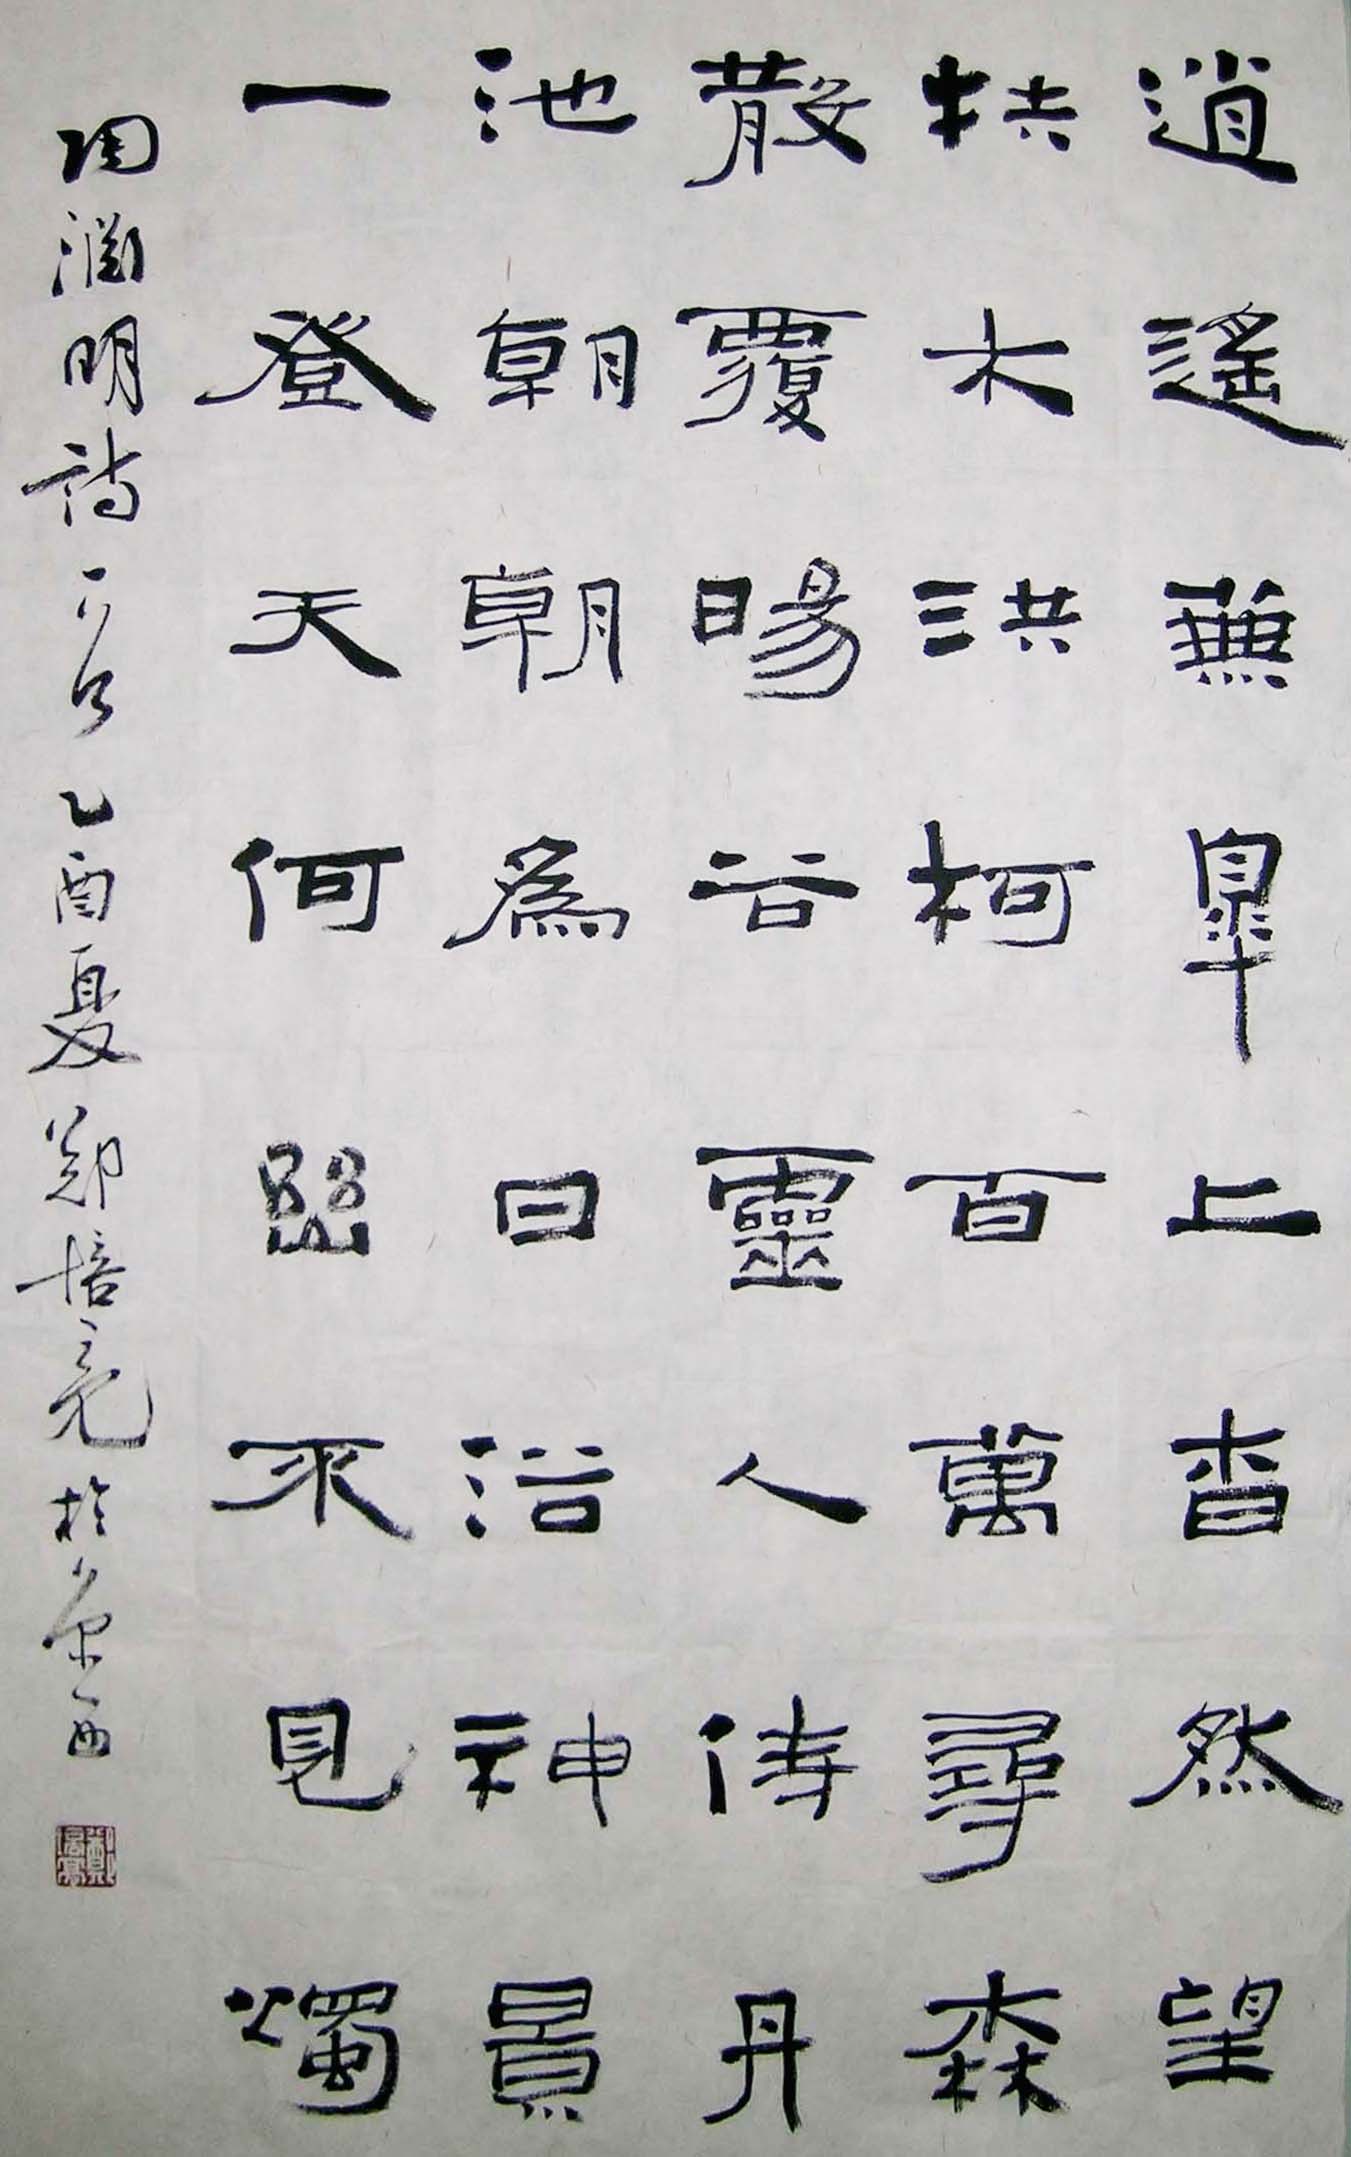 逍遙蕪皐上杳然望
扶木洪柯百萬尋森
散覆暘谷靈人侍丹
池朝朝爲日浴神景
一登天何幽不見燭
陶淵明詩一首 乙酉夏 鄭培亮於京西